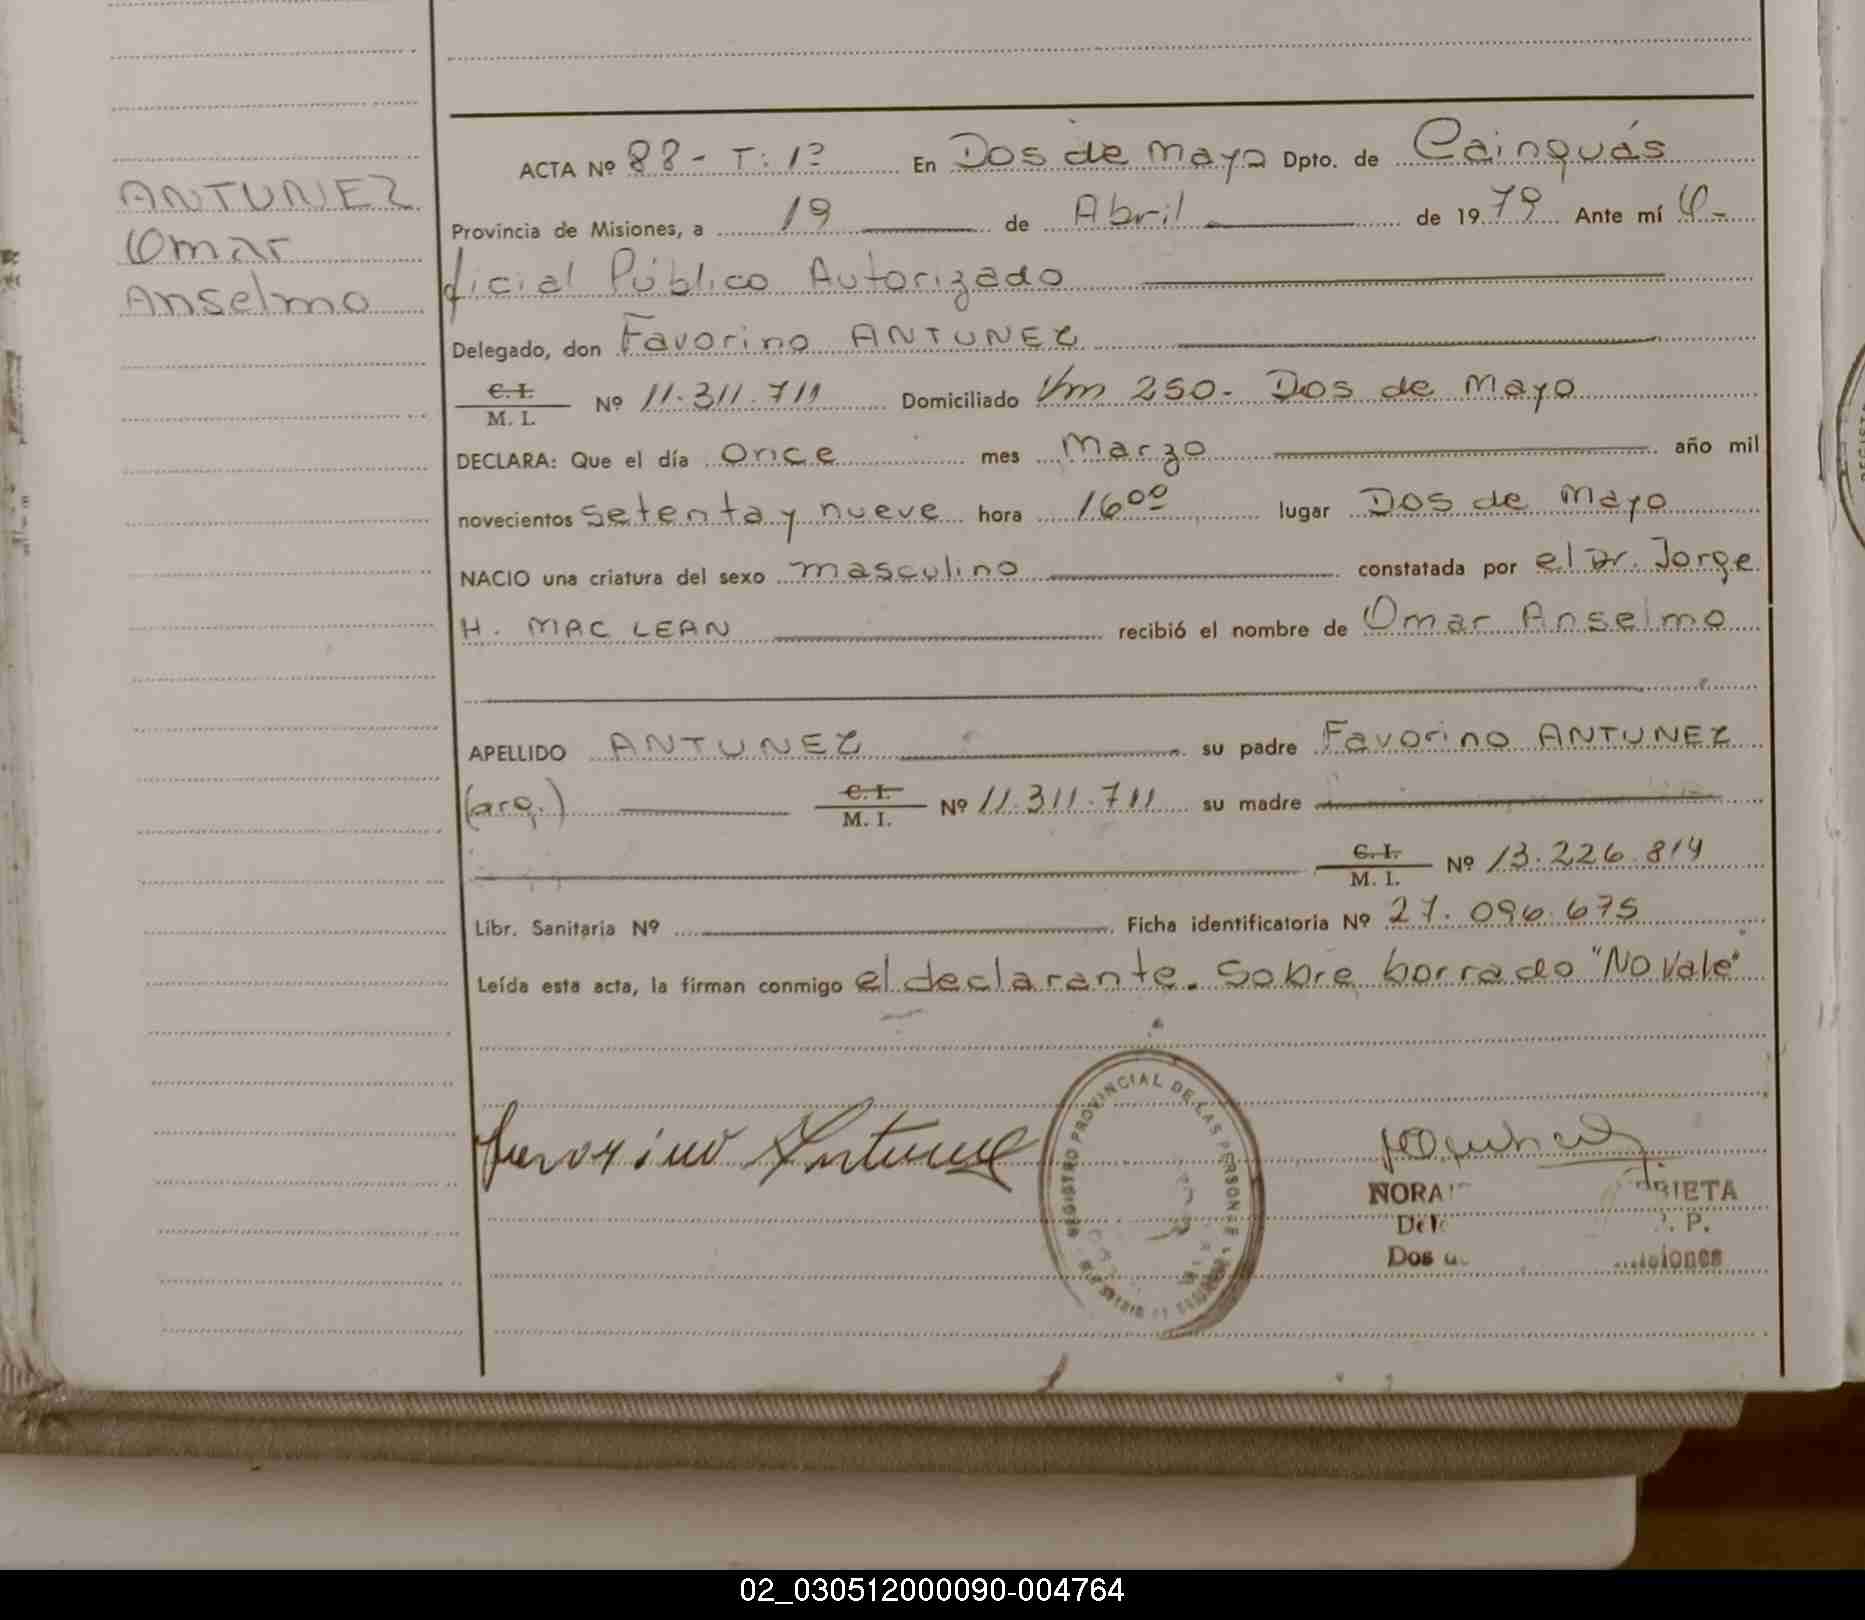 ANTUNEZ
Omar
Anselmo
ACTA Nº 88 - T: 1º En Dos de Mayo Dpto. de Cainguás
Provincia de Misiones, a 19 de Abril de 1979 Ante mí O-
ficial Público Autorizado
Delegado, don Favorino ANTUNEZ
C. I. / M. I. Nº 11.311.711 Domiciliado Km 250 - Dos de Mayo
DECLARA: Que el día once mes Marzo año mil
novecientos setenta y nueve hora 16 00 lugar Dos de Mayo
NACIO una criatura del sexo masculino constatada por el Dr. Jorge
H. MAC LEAN recibió el nombre de Omar Anselmo
APELLIDO ANTUNEZ su padre Favorino ANTUNEZ
(arg.) C. I. / M. I. Nº 11.311.711 su madre
C. I. / M. I. Nº 13.226.814
Libr. Sanitaria Nº Ficha identificatoria Nº 27.096.675
Leída esta acta, la firman conmigo el declarante. Sobre borrado "No Vale"
Favorino Antunez
REGISTRO PROVINCIAL DE LAS PERSONAS
Dos
02_030512000090-004764